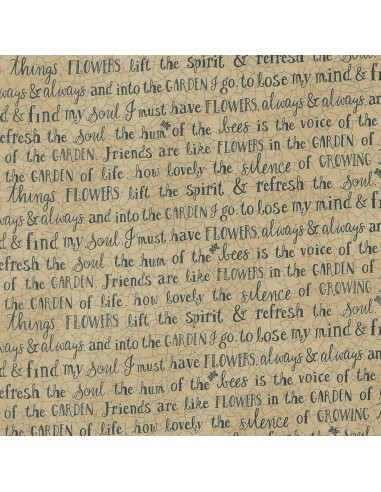 things. FLOWERS lift the Spirit & refresh the Soul.
ways & always and into the GARDEN I go. to lose my mind & fi
d & find my Soul. I must have FLOWERS, always & always an
refresh the Soul. the hum of the bees is the voice of the
of the GARDEN. Friends are like FLOWERS in the GARDEN of
the GARDEN of life. how lovely the silence of GROWING
things. FLOWERS lift the Spirit & refresh the Soul.
ways & always and into the GARDEN I go. to lose my mind & fi
d & find my Soul. I must have FLOWERS, always & always an
efresh the Soul. the hum of the bees is the voice of the
of the GARDEN. Friends are like FLOWERS in the GARDEN of
the GARDEN of life. how lovely the silence of GROWING
things. FLOWERS lift the Spirit & refresh the Soul.
ways & always and into the GARDEN I go. to lose my mind & fi
d & find my Soul. I must have FLOWERS, always & always an
refresh the Soul. the hum of the bees is the voice of the
of the GARDEN. Friends are like FLOWERS in the GARDEN of
the GARDEN of life. how lovely the silence of GROWING
things. FLOWERS lift the Spirit & refresh the Soul.